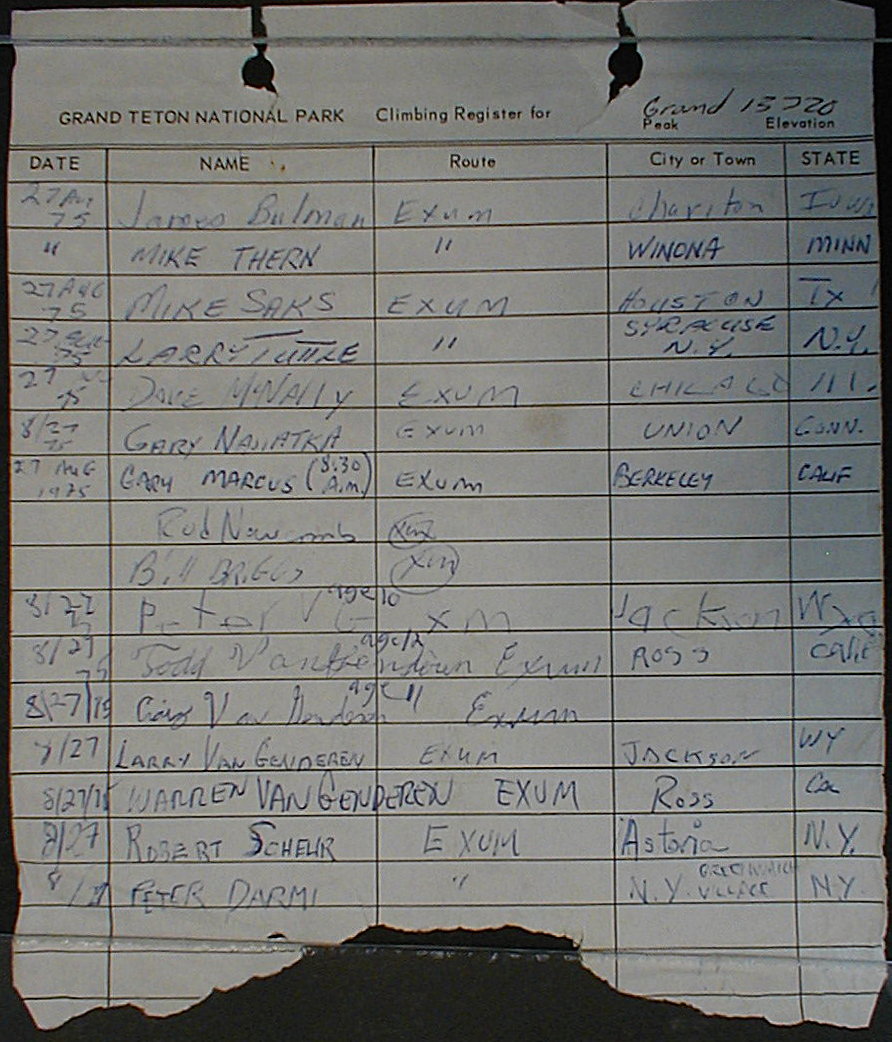 Grand 13770
GRAND TETON NATIONAL PARK Climbing Register for Peak Elevation
DATE NAME Route City or Town STATE
27 Aug 75 Bulman Exum Chariton Iowa
" MIKE THERN " WINONA MINN
27 AUG 75 MIKE SAKS EXUM HOUSTON TX
27 75 LARRY TUTTLE " SYRACUSE N.Y. N.Y.
27 75 DAVE McNALLY EXUM CHICAGO Ill.
8/27 75 GARY EXUM UNION CONN.
27 AUG 1975 GARY MARCUS (8:30 A.M.) EXUM BERKELEY CALIF
Rod Newcomb
Bill BRIGGS
8/27 75 Peter V G age 10 XM Jackson Wyo
8/27 75 Todd age 12 Exum ROSS CALIF
8/27/75 Van age 11 Exum
8/27 LARRY VAN GENDEREN EXUM JACKSON WY
8/27/75 WARREN VAN GENDEREN EXUM ROSS Ca
8/27 ROBERT SCHEUR EXUM Astoria N.Y.
8/27 PETER DARMI " N.Y. GREENWICH VILLAGE N.Y.